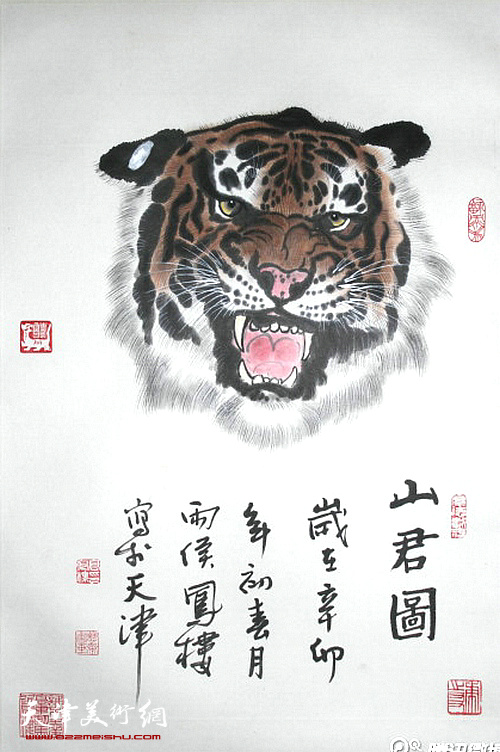 山君圖
歲在辛卯
年初春月
雨侯鳳樓
寫於天津
天津美術網
www.022meishu.com